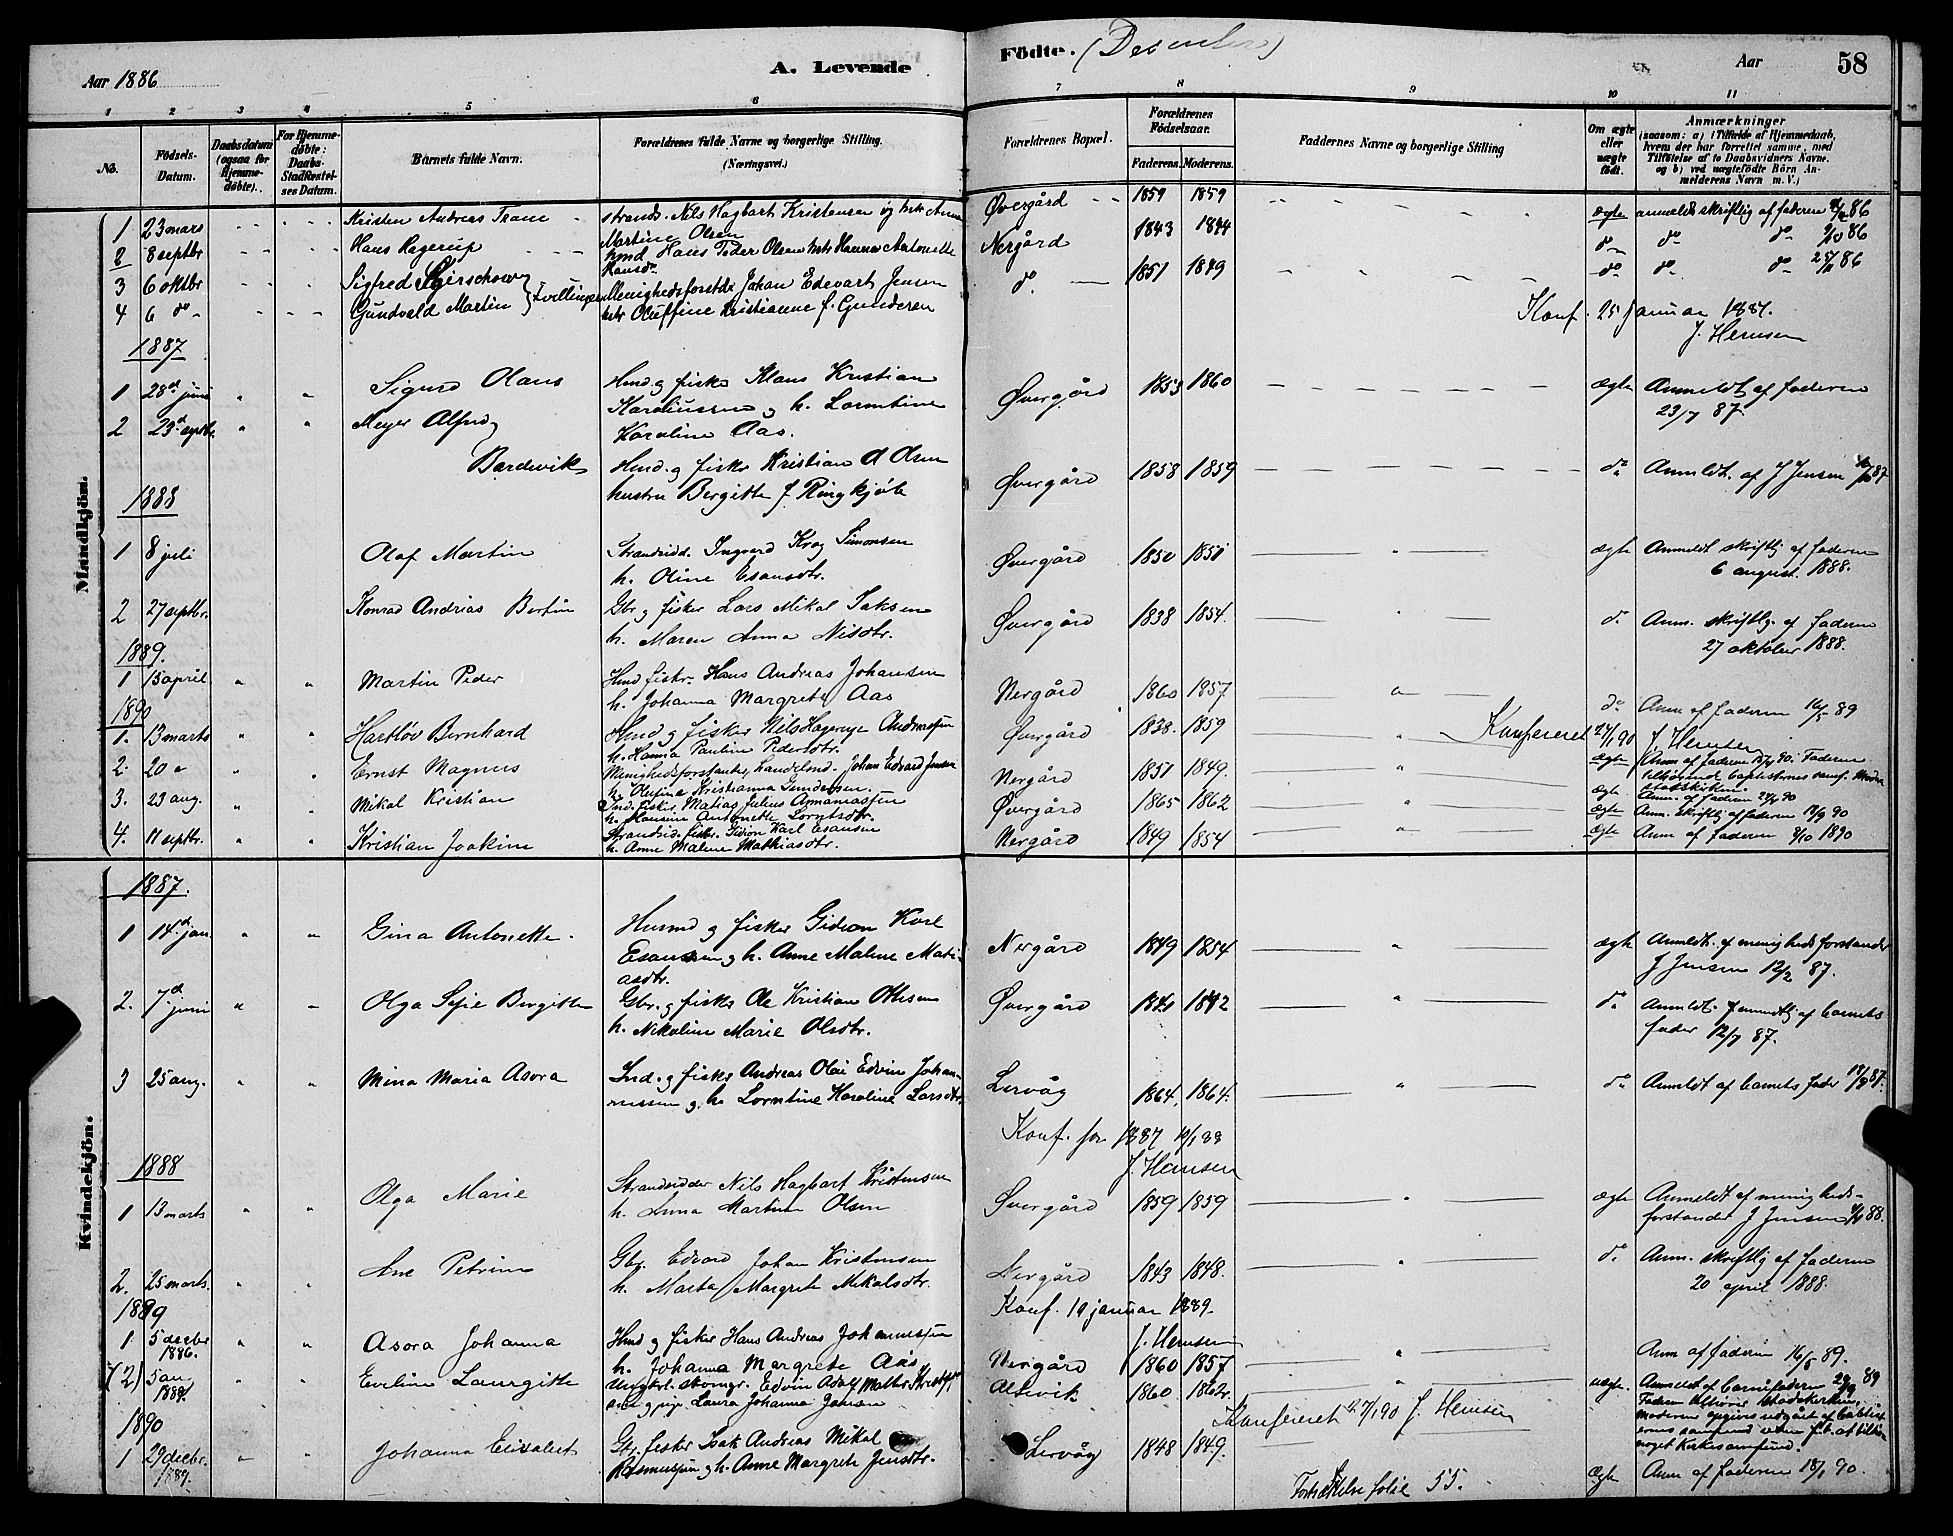 Aar 1886
A. Levende
Födte. (Desenter)
Aar
58
1 2 3 4 5 6 7 8 9 10 11
No.
Födsels-Datum.
Daabsdatum (ogsaa for Hjemme-döbte).
For Hjemme-döbte: Daabs-Stadfæstel-ses Datum.
Barnets fulde Navn.
Forældrenes fulde Navne og borgerlige Stilling. (Næringsvei.)
Forældrenes Bopæl.
Forældrenes Födselsaar.
Faderens. Moderens.
Faddernes Navne og borgerlige Stilling
Om ægte eller uægte födt.
Anmærkninger (saasom: a) i Tilfælde af Hjemmedaab, hvem der har forrettet samme, med Tilföielse af to Daabsvidners Navne. og b) ved uægtefödte Börn An-melderens Navn m. V.)
Mandkjön.
1 23 mars Kristen Andreas Trane strands. Nils Hagbart Kristensen og hst Anne Øvergård 1859 1859 ægte anmeldt skriftlig af faderen 86
Martine Olsen
2 8 septbr Hans Hagerup hmd Hans Peder Olsen hst Hanna Antonette Nergård 1843 1844 do do do 86
Hansdr
3 6 oktbr Sigfred Menighedsforstdr Johan Edevart Jensen do 1851 1849 do do do 86
4 6 do Gundvald Martin } Tvillinger hst Oluffine Kristianne f. Gundersen
Konf. 25 januar 1887.
J. Hemsen
1887
1 28d juni Sigurd Olaus Hmd og fisker Klaus Kristian Øvergård 1853 1860 ægte Anmeldt af faderen
Karoliussen og h. Lorntine 23/7 87.
Karoline Aas.
2 29d septbr. Meyer Alfred
Bardevik Hmd. og fisker Kristian A Olsen Øvergård 1858 1859 do Anmeldt. af J Jensen 87
hustru Bergitte f. Ringkjøb
1888
1 8 juli Olaf Martin Strandsidd. Ingvard Krog Simonsen Øvergård 1850 1851 ægte Anmeldt skriftlig af faderen
h. Oline Esaudtr. 6 august. 1888.
2 27 septbr. Konrad Andrias Bertin Gbr og fisker Lars Mikal Isaksen Øvergård 1838 1854. do Anm. skriftlg. af faderen
h. Maren Anna Nilsdtr. 27 oktober 1888.
1889.
1 15 april Martin Peder Hmd fiskr. Hans Andreas Johansen Nergård 1860 1857 do Anm af faderen 16/5 89
h. Johanna Margrete Aas
1890
1. 13 marts Hartløv Bernhard Hmd og fisker Nils Hagerup Andreassen Øvergård 1838. 1859 Konfereret 27/1 90 J. Hemsen
h. Hanna Pauline Pedersdtr.
2. 20 " Ernst Magnus Menighedsforstander, handelsmd. Johan Edvard Jensen Nergård 1851 1849. ægte Anm af faderen 90. Faderen
h. Olufine Kristianna Gundersen. tilhørende baptisternes samf. Moder
statskirken.
3. 23 aug. Mikal Kristian Ind. fisker Matias Julius Annaniassen Øvergård 1865 1862 ægte Anm. skriftlig af faderen 90
h. Hansine Antonette Lorntsdtr.
4. 11 septbr. Kristian Joakim Strandsid. fiskr. Gideon Karl Esausen Nergård 1849 1854 ægte Anm af faderen 2/10 1890
h. Anne Malene Mathiasdtr.
Kvindekjön.
1887.
1 14d jan. Gina Antonette. Husmd og fisker Gideon Karl Nergård 1849 1854 ægte Anmeldt. af menighedsforstander
Esausen og h. Anne Malene Mati- J Jensen 12/2 87.
asdtr.
2. 7d juni Olga Sofie Bergitte Gbr. og fisker Ole Kristian Olsen Øvergård 1842 do Anmeldt. mundtlig af barnets
h. Nikoline Marie Olsdtr. fader 12/7 87.
3 25 aug. Mina Maria Asora Ind. og fisker Andreas Olai Edvin Johan- Lervåg 1864. 1864. do Anmeldt af barnets fader 87.
nessen og h. Lorntine Karoline Larsdtr.
Konf. for 1887 88
J. Hemsen
1888
1 13 marts Olga Marie Strandsidder Nils Hagbart Kristensen Øvergård 1859 1859 ægte Anmeldt af menigheds-
h. Anna Martine Olsen forstander J Jensen 88.
2. 25 marts Ane Petrine Gbr. Edvard Johan Kristensen Nergård 1843 1848. do Anm. skriftlig af faderen
h. Marta Margrete Mikalsdtr. 20 april 1888.
Konf. 19 januar 1889.
J. Hemsen
1889
1 5 decbr 1886. Asora Johanna Hmd og fisker Hans Andreas Johannessen Nergård 1860 1857 Anm af faderen 16/5 89.
h. Johanna Margrete Aas
(2) 5 1889. Eveline Laurgitte Ungkrl. skomgr. Edvin Adolf Altevik 1860 uægte. Anmeldt af barnefaderen 89
og pige Laura Johanna Jensen Faderen tilhører Statskirken,
Konfereret 27/1 90 J. Hemsen moderen opgives udgået af baptist-
ernes samfund uden at tilhøre
noget kirkesamfund.
1890
1 29 decbr. 1889. Johanna Elisabet Gbr. fisker Isak Andreas Mikal Lervåg 1848 1849. ægte Anm af faderen 18/1 90.
Rasmussen og h. Anne Margrete Jensdtr.
Fortsættelse folie 55.